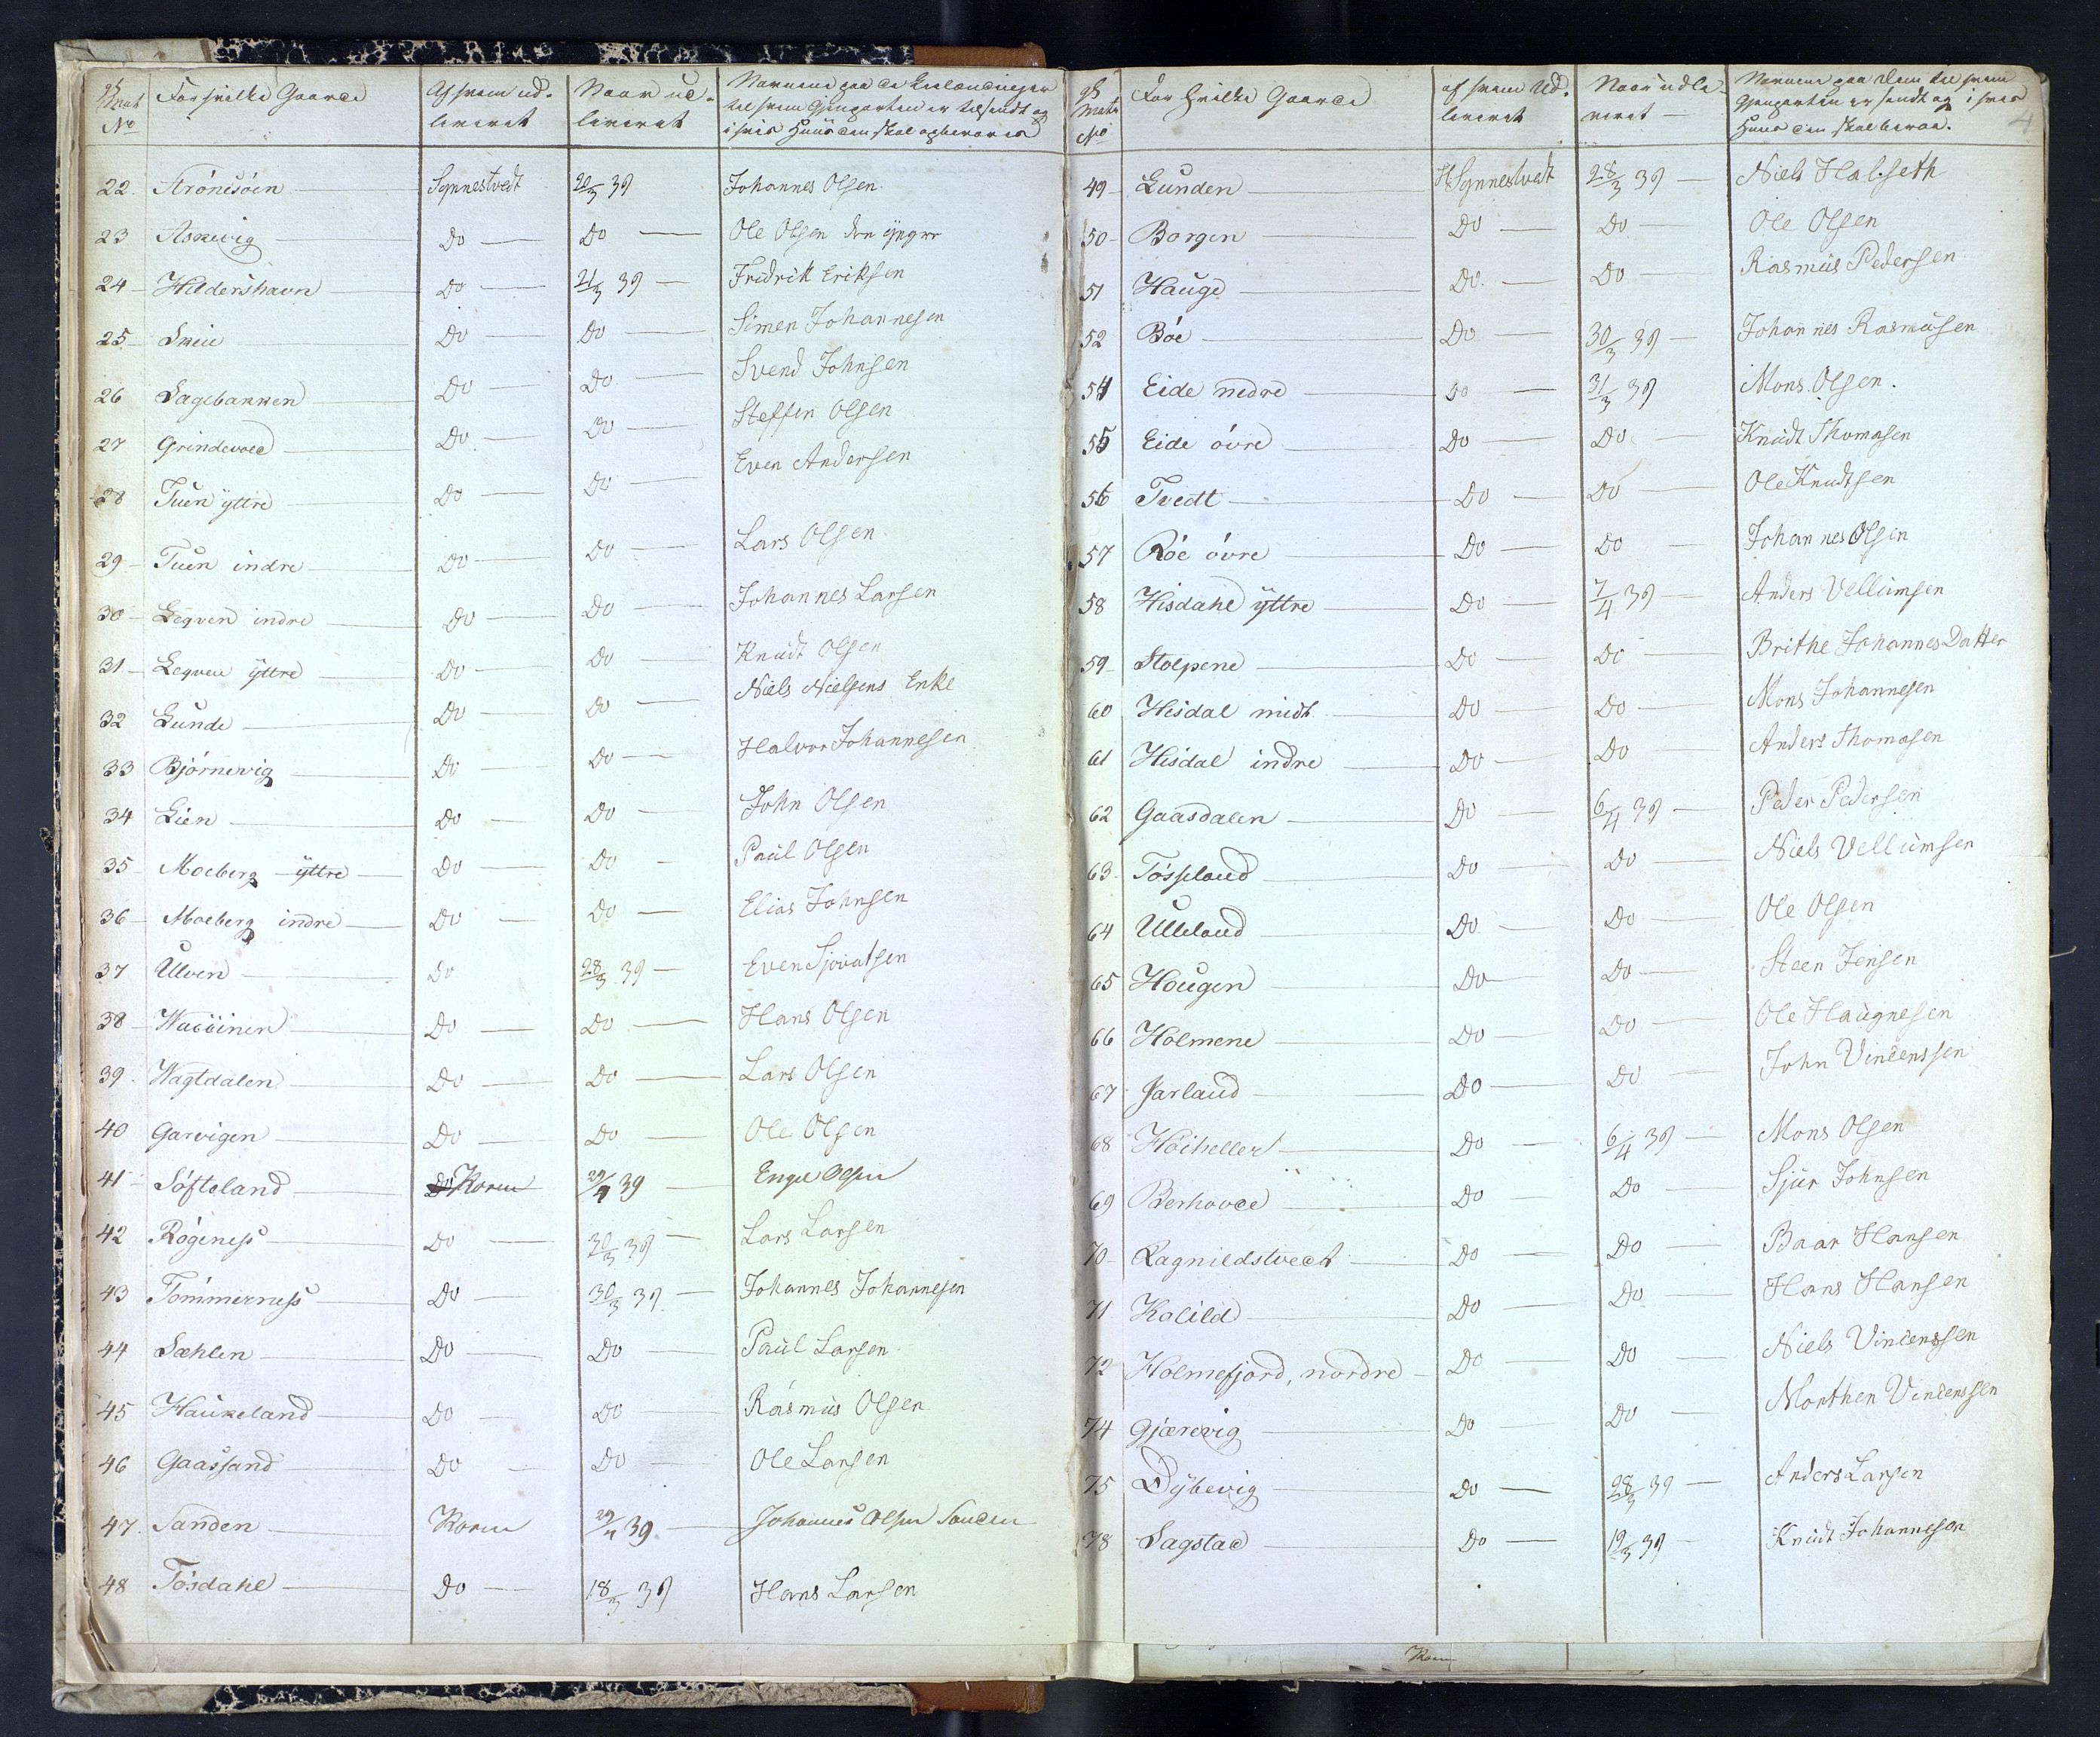 Mat No | For hvilke Gaarde | Af hvem udleveret | Naar udleveret | Navnene paa de Qvelændinger til hvem Gjenparten er tilsendt og i hvis Huus den skal opbevares
22 Strønesøen Synnestvedt 20/3 39 Johannes Olsen
23 Askevig Do Do Ole Olsen den yngre
24 Hildershavn Do 21/3 39 Fredrik Eriksen
25 Do Do Simen Johannesen
26 Sagebakken Do Do Svend Johnsen
27 Grindevold Do Do Steffen Olsen
28 Tuen yttre Do Do Even Andersen
29 Tuen indre Do Do Lars Olsen
30 Legven indre Do Do Johannes Larsen
31 Legven yttre Do Do Knudt Olsen
32 Lunde Do Do Niels Nielsens Enke
33 Bjørnevig Do Do Halvor Johannesen
34 Lien Do Do John Olsen
35 Moberg yttre Do Do Paul Olsen
36 Moberg indre Do Do Elias Johnsen
37 Ulven Do 28/3 39 Even Sjovatsen
38 Do Do Hans Olsen
39 Vagtdalen Do Do Lars Olsen
40 Garvigen Do Do Ole Olsen
41 Søfteland Do Koren 29/4 39 Engel Olsen
42 Røgeness Do 30/3 39 Lars Larsen
43 Tømmerness Do 30/3 39 Johannes Johannesen
44 Sæhlen Do Do Paul Larsen
45 Haukeland Do Do Rasmus Olsen
46 Gaassand Do Do Ole Larsen
47 Sanden Koren 29/4 39 Johannes Olsen Sanden
48 Tøsdahl Do 18/3 39 Hans Larsen
Mat No | For hvilke Gaarde | af hvem Udleveret | Naar udleveret | Navnene paa dem til hvem Gjenparten er sendt og i hvis Huus den skal beroe.
4
49 Lunden H Synnestvedt 28/3 39 Niels Halseth
50 Borgen Do Do Ole Olsen
51 Hauge Do Do Rasmus Pedersen
52 Bøe Do 30/3 39 Johannes Rasmusen
54 Eide nedre Do 31/3 39 Mons Olsen.
55 Eide øvre Do Do Knudt Thomasen
56 Tvedt Do Do Ole Knudtsen
57 Røe øvre Do Do Johannes Olsen
58 Hisdahl yttre Do 7/4 39 Anders Vellumsen
59 Stolpene Do Do Brithe JohannesDatter
60 Hisdal midt Do Do Mons Johannesen
61 Hisdal indre Do Do Anders Thomasen
62 Gaasdalen Do 6/4 39 Peder Pedersen
63 Tøsseland Do Do Niels Vellumsen
64 Ulleland Do Do Ole Olsen
65 Hougen Do Do Steen Jensen
66 Holmene Do Do Ole Haugnesen
67 Jarland Do Do John Vindenssen
68 Høiheller Do 6/4 39 Mons Olsen
69 Berhovde Do Do Sjur Johnsen
70 Ragnildstvedt Do Do Baar Hansen
71 Kolild Do Do Hans Hansen
72 Holmefjord, nordre Do Do Niels Vindenssen
74 Gjærevig Do Do Monthen Vindenssen
75 Dybevig Do 28/3 39 Anders Larsen
78 Sagstad Do 19/3 39 Knudt Johannesen
Koren